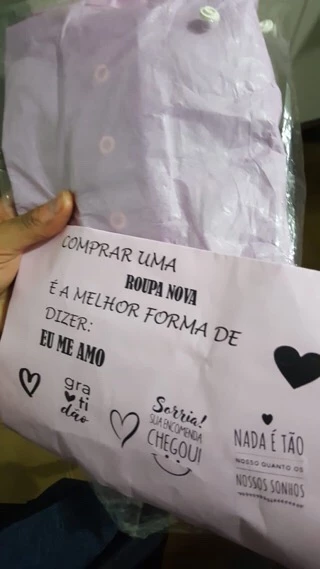 COMPRAR UMA
ROUPA NOVA
É A MELHOR FORMA DE
DIZER:
EU ME AMO
gra
ti
dão
Sorria!
SUA ENCOMENDA
CHEGOU!
NADA É TÃO
NOSSO QUANTO OS
NOSSOS SONHOS